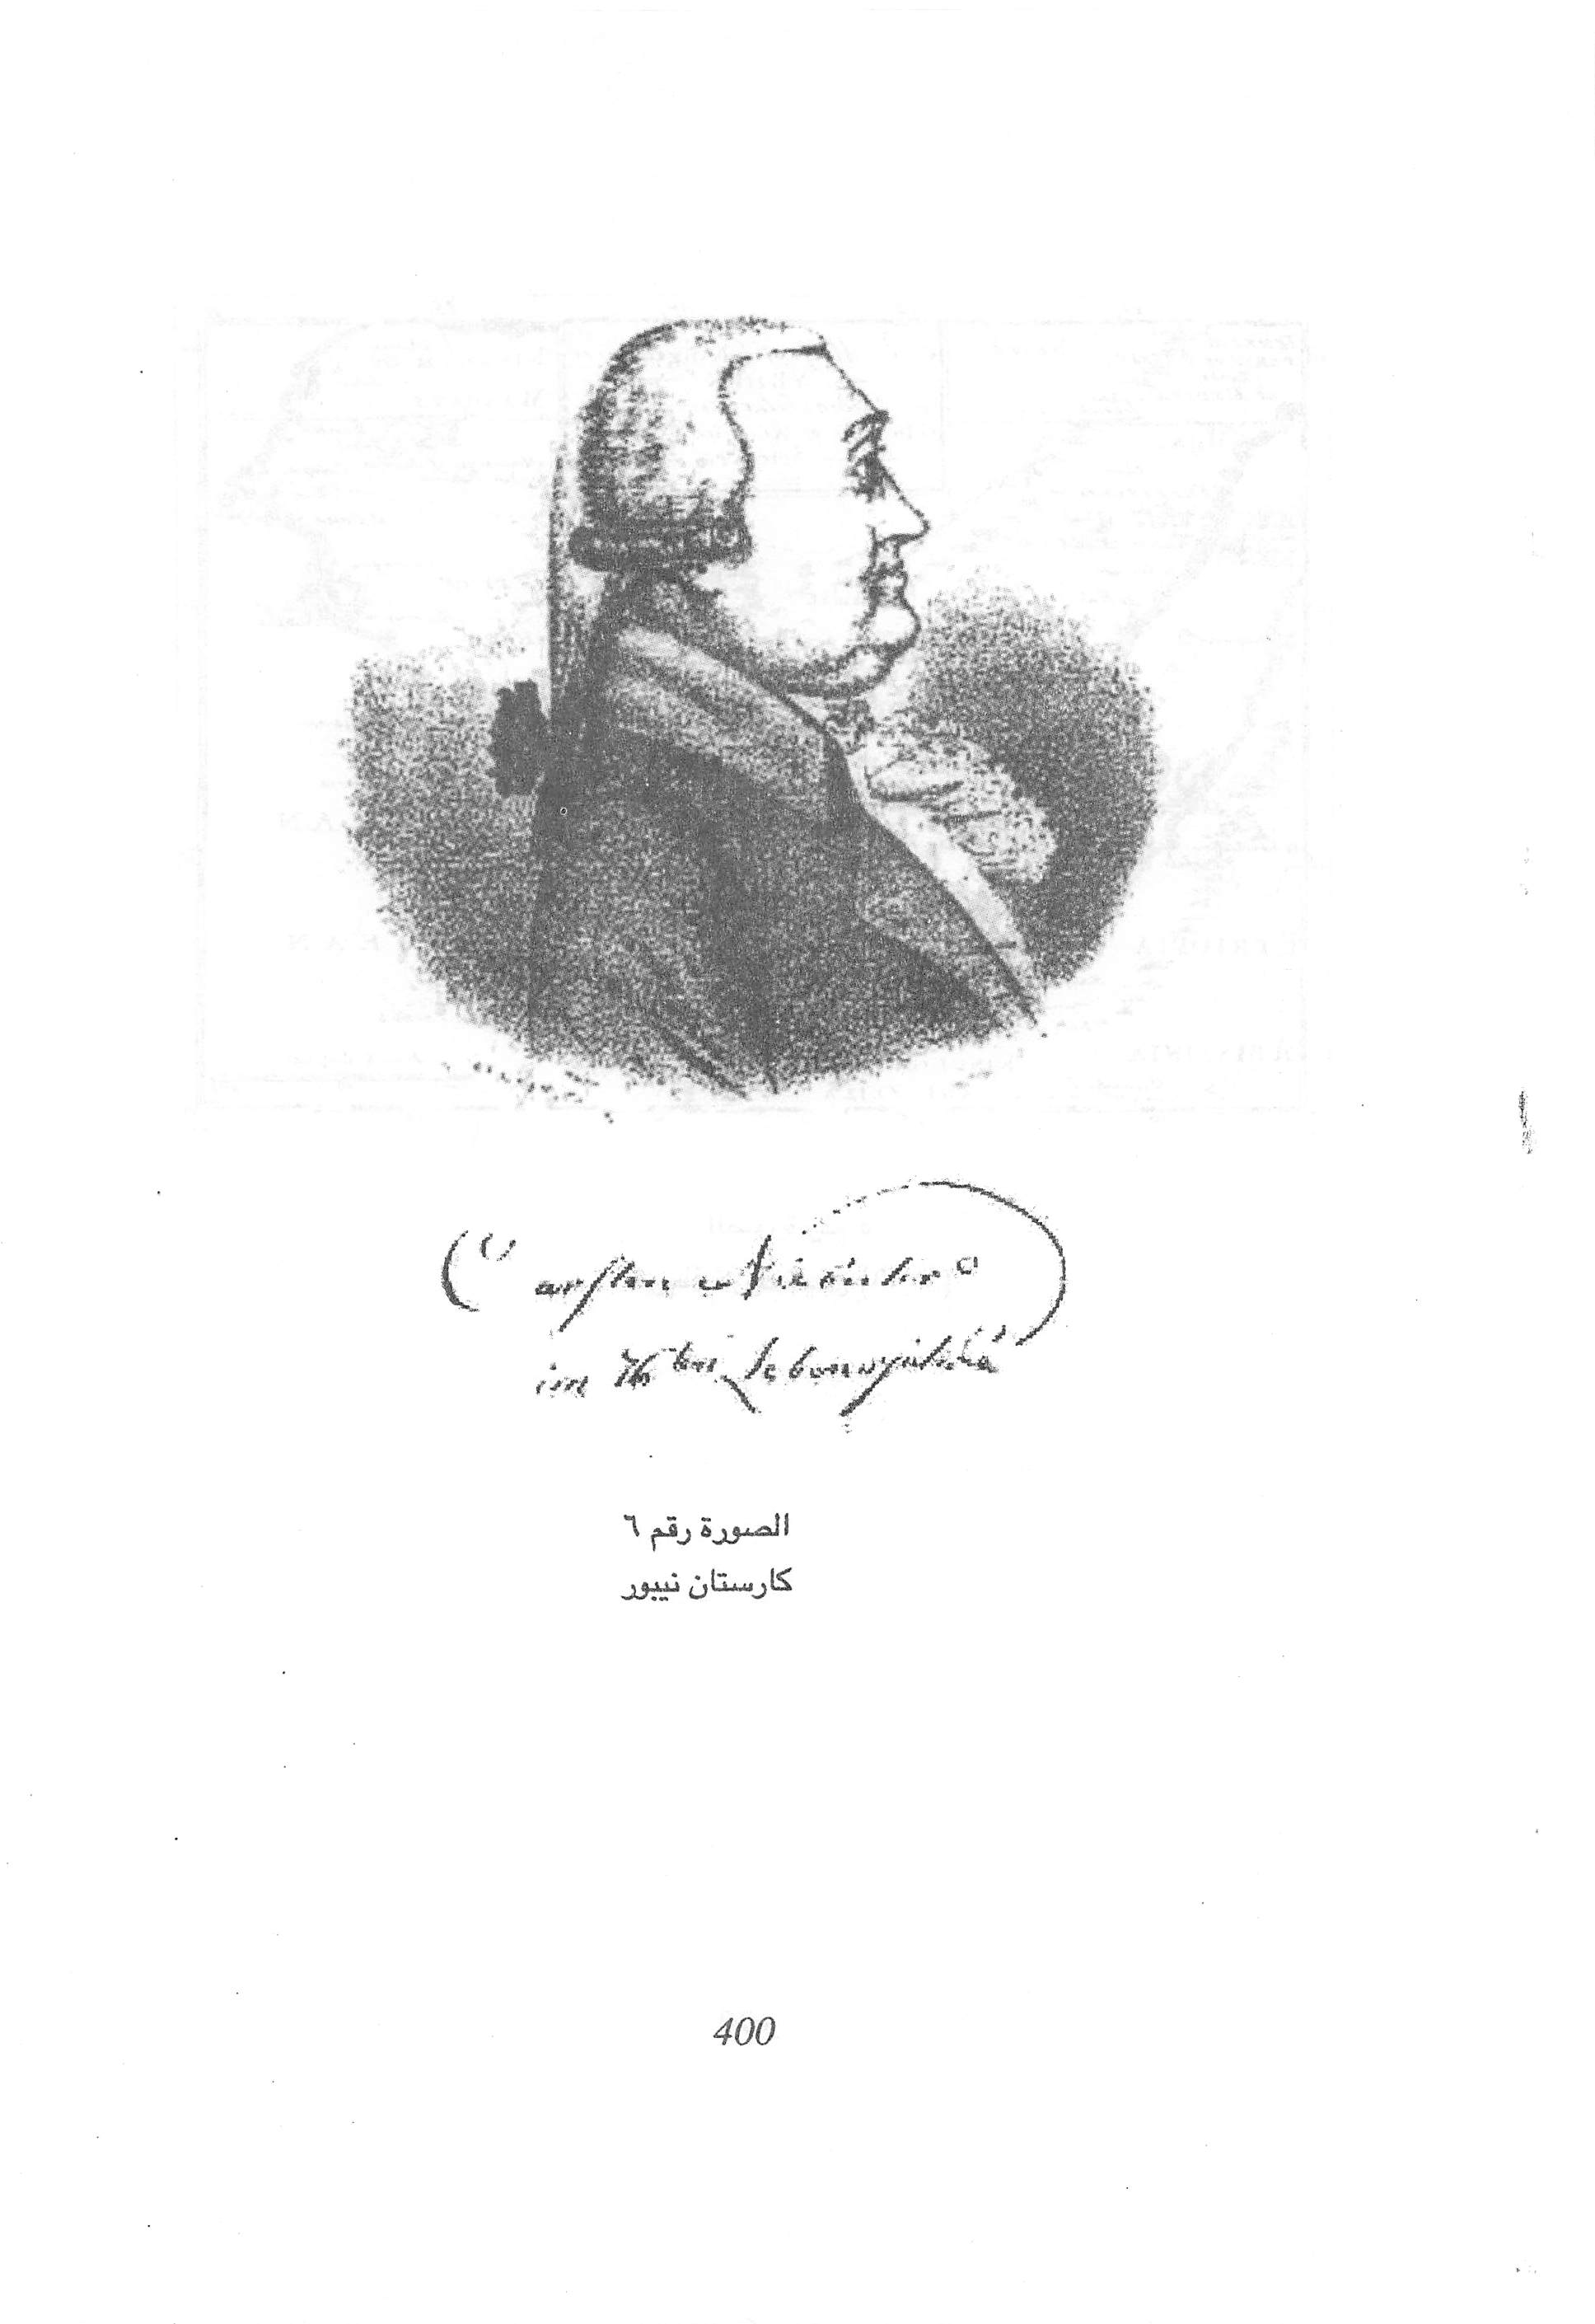 Carsten Niebuhr
im 76ten Lebensjahre
الصورة رقم ٦
كارستان نيبور
400